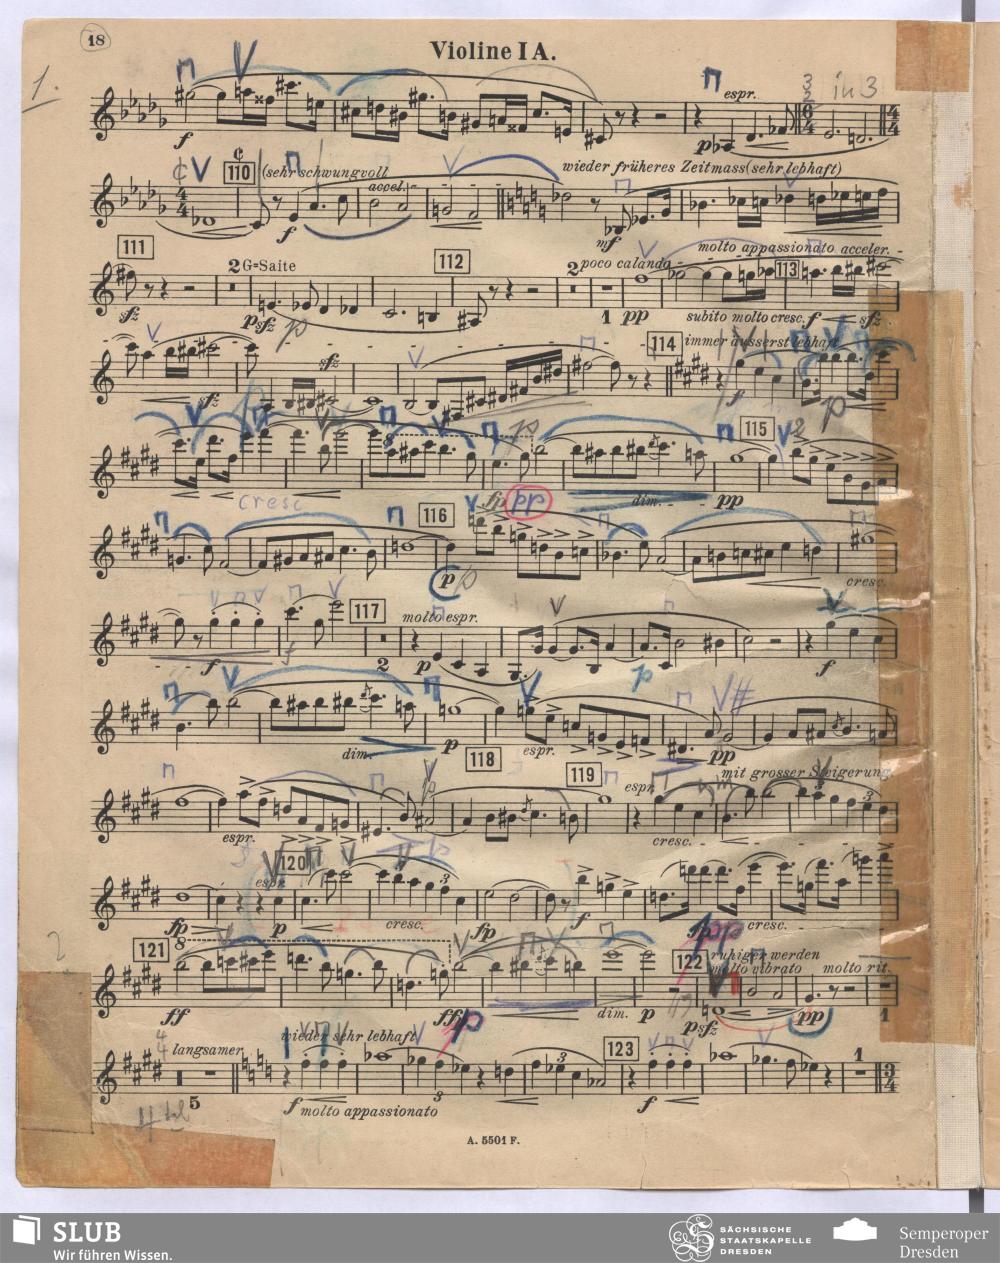 18
Violine I A.
1.
espr.
3 2 in 3
6 4
4 4
f
p
110 (sehr schwungvoll
accel.
wieder früheres Zeitmass (sehr lebhaft)
4 4
f
mf
111
2 G=Saite
112
2 poco calando
molto appassionato acceler.
113
sfz
p sfz
p
1 pp
subito molto cresc. f
sfz
sfz
114 immer äusserst lebhaft
sfz
f
p
8
p
115
2
cresc
fp
pp
dim.
pp
116
p
p
cresc.
117
molto espr.
f
f
2
p
p
f
dim.
p
118
espr.
pp
119
mit grosser Steigerung
espr.
espr.
cresc.
3
3
120
espr.
3
fp
p
cresc.
fp
f
pp
cresc.
2
121
8
122 ruhiger werden
molto vibrato
molto rit.
ff
fff
p
dim.
p
p sfz
pp
1
4 4
langsamer
wieder sehr lebhaft
3
123
1
3 4
5
f molto appassionato
3
f
A. 5501 F.
SLUB
Wir führen Wissen.
SÄCHSISCHE
STAATSKAPELLE
DRESDEN
Semperoper
Dresden